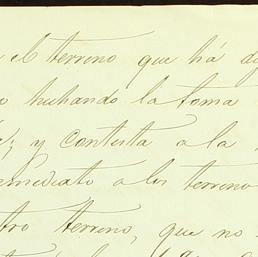 el terreno que há
la toma
y contesta a la
inmediato a los terreno
tro terreno, que no